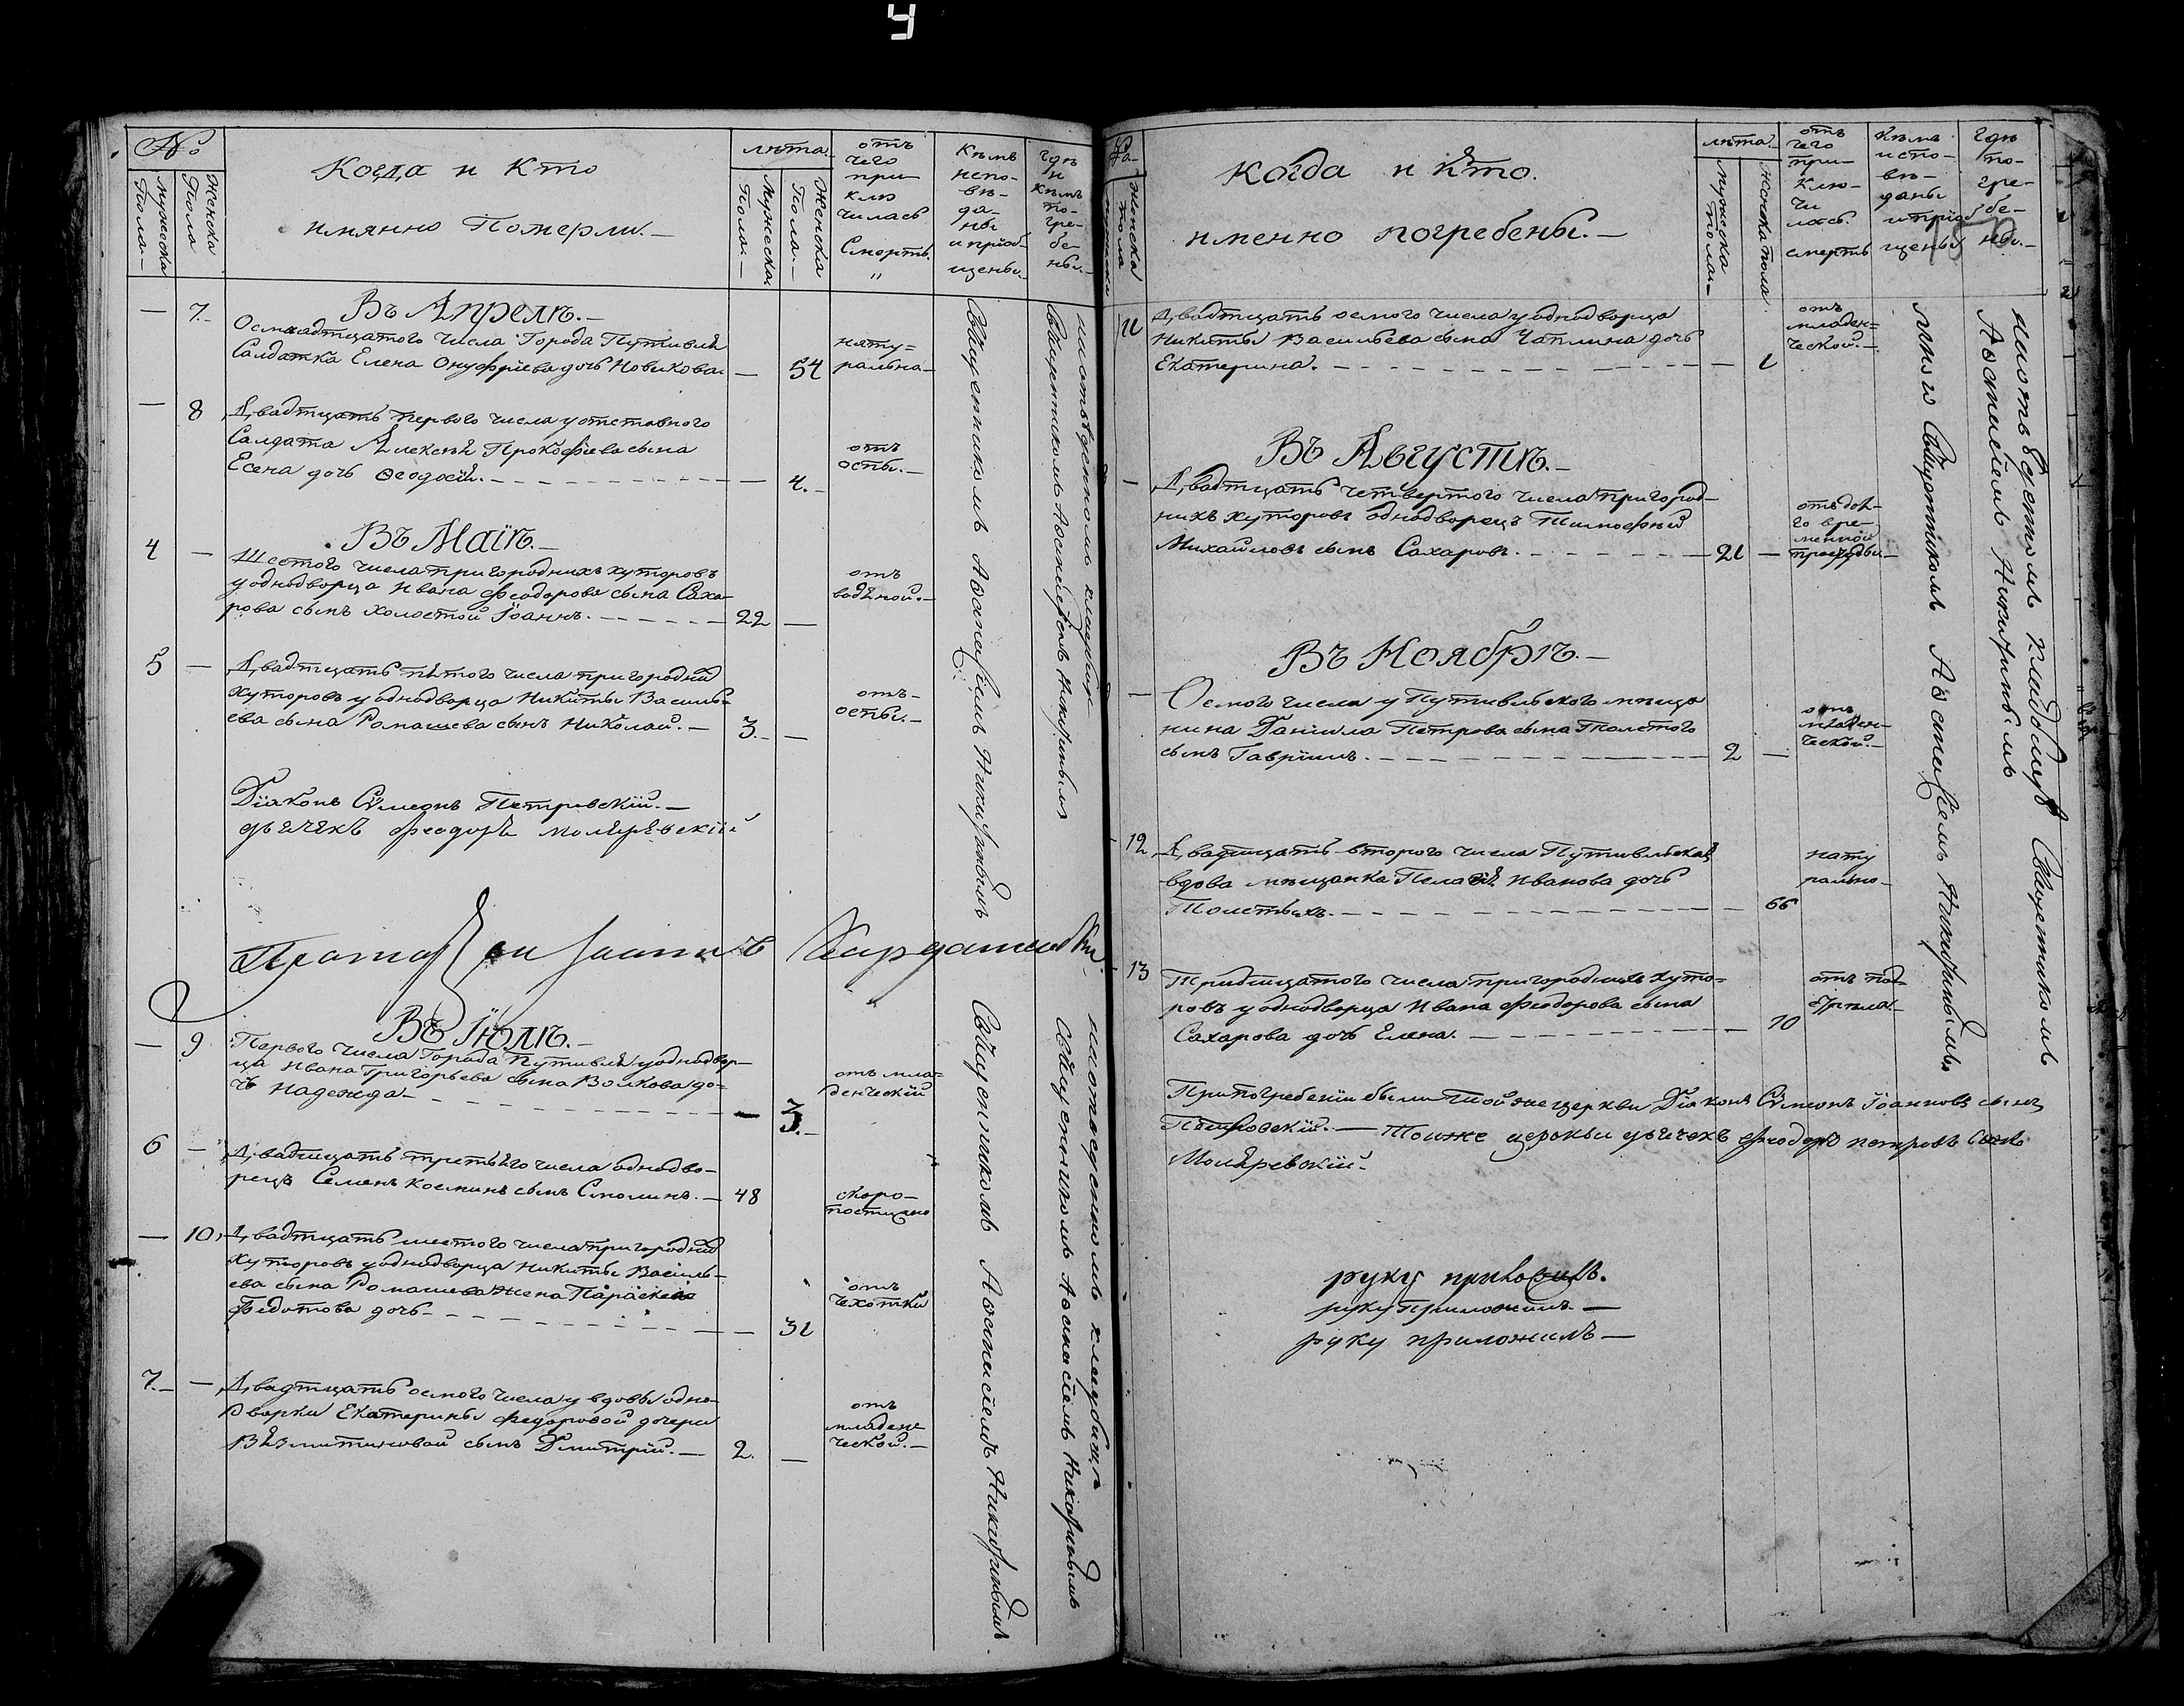 У
№
Когда и кто
имянно Померли.—
Мужеска Пола.—
Женска Пола
лѣта.
Мужеска Пола.—
Женска Пола.—
отъ
чего
при
клю
чилась
Смерть.
"
Кѣмъ
испо-
вѣ-
да-
ны
и приоб-
щены.
гдѣ
и
кѣмъ
по-
гре-
бе-
ны.
Въ Апрелѣ.—
— 7.
Осмнадтцатого числа Города Путивля
Салдатка Елена Онуфріева дочь Новикова — 54
нату=
ральна—
— 8
Двадтцать первого числа у отставного
Салдата Алексѣя Прокофіева сына
Есена дочь Ѳеодосія. — 4.
отъ
оспы.—
Въ Маіѣ.—
4 —
Шестого числа пригороднихъ хуторовъ
у однодворца Ивана Феодорова сына Саха-
рова сынъ холостой Іоаннъ. — 22 —
отъ
водяной.—
5 —
Двадтцать пятого числа пригородній
хуторовъ у однодворца Никиты Василь=
ева сына Ромашева сынъ Николай.— 3. —
отъ-
оспы.—
Священникомъ Аѳанасіемъ Никифоровымъ
на отведенномъ кладбищѣ
Священникомъ Аѳанасіемъ Никифоровымъ
Діаконъ Сѵмеонъ Петровскій.—
дьячекъ Феодоръ Моляревскій
Въ Іюлѣ.—
— 9
Первого числа Города Путивля у однодвор-
ца Ивана Григорьева сына Волкова до=
чь Надежда — 3.
отъ мла=
денческій
6 —
Двадтцать третьяго числа однодво-
рецъ Семенъ Косминъ сынъ Смолинъ.— 48
скоро-
постижно
— 10
Двадтцать шестого числа пригородній
хуторовъ у однодворца Никиты Василь-
ева сына Ромашева жена Параскева
Федотова дочь — 31
отъ
чехотки
7. —
Двадтцать осмого числа у вдовы одно-
дворки Екатерины Федоровой дочери
Вязмитиновой сынъ Дмитрій.— 2. —
отъ
младен
ческой.—
Священникомъ Аѳанасіемъ Никифоровымъ
на отведенномъ кладбищѣ
Священникомъ Аѳанасіемъ Никифоровымъ
Когда и кто.
именно погребены.—
Женска пола
лѣта
Мужеска Пола.—
Женска пола
отъ
чего
при-
клю-
чи
лась.
смерть
Кѣмъ
испо-
вѣ-
даны
и приоб
щены
гдѣ
по-
гре-
бе-
ны.—
11
Двадтцать осмого числа у однодворца
Никиты Васильева сына Чаплина дочь
Екатерина. — 1
отъ
младен=
ческой.—
Въ Августѣ.—
—
Двадтцать четвертого числа пригород-
нихъ хуторовъ однодворецъ Тимофей
Михайловъ сынъ Сахаровъ. — 21 —
отъ дол-
го вре-
менной
простуды—
Въ Ноябрѣ.—
—
Осмого числа у Путивльского мѣща
нина Даніила Петрова сына Толстого
сынъ Гавріилъ. — 2 —
отъ
младен-
ческой.—
12
Двадтцать второго числа Путивльская
вдова мѣщанка Пелагія Иванова дочь
Толстыхъ. — 66
нату
рально—
13
Тридтцатого числа пригороднихъ хуто=
ровъ у однодворца Ивана Феодорова сына
Сахарова дочь Елена. — 10
Священникомъ Аѳанасіемъ Никифоровымъ
на отведенномъ кладбищѣ Священникомъ
Аѳанасіемъ Никифоровымъ
При погребеніи были той же церкви Діаконъ Сѵмеонъ Іоанновъ сынъ
Петровскій.— Тоиже церкви дьячекъ Феодоръ Петровъ сынъ
Моляревскій.
руку приложилъ.
руку приложилъ.—
руку приложилъ—